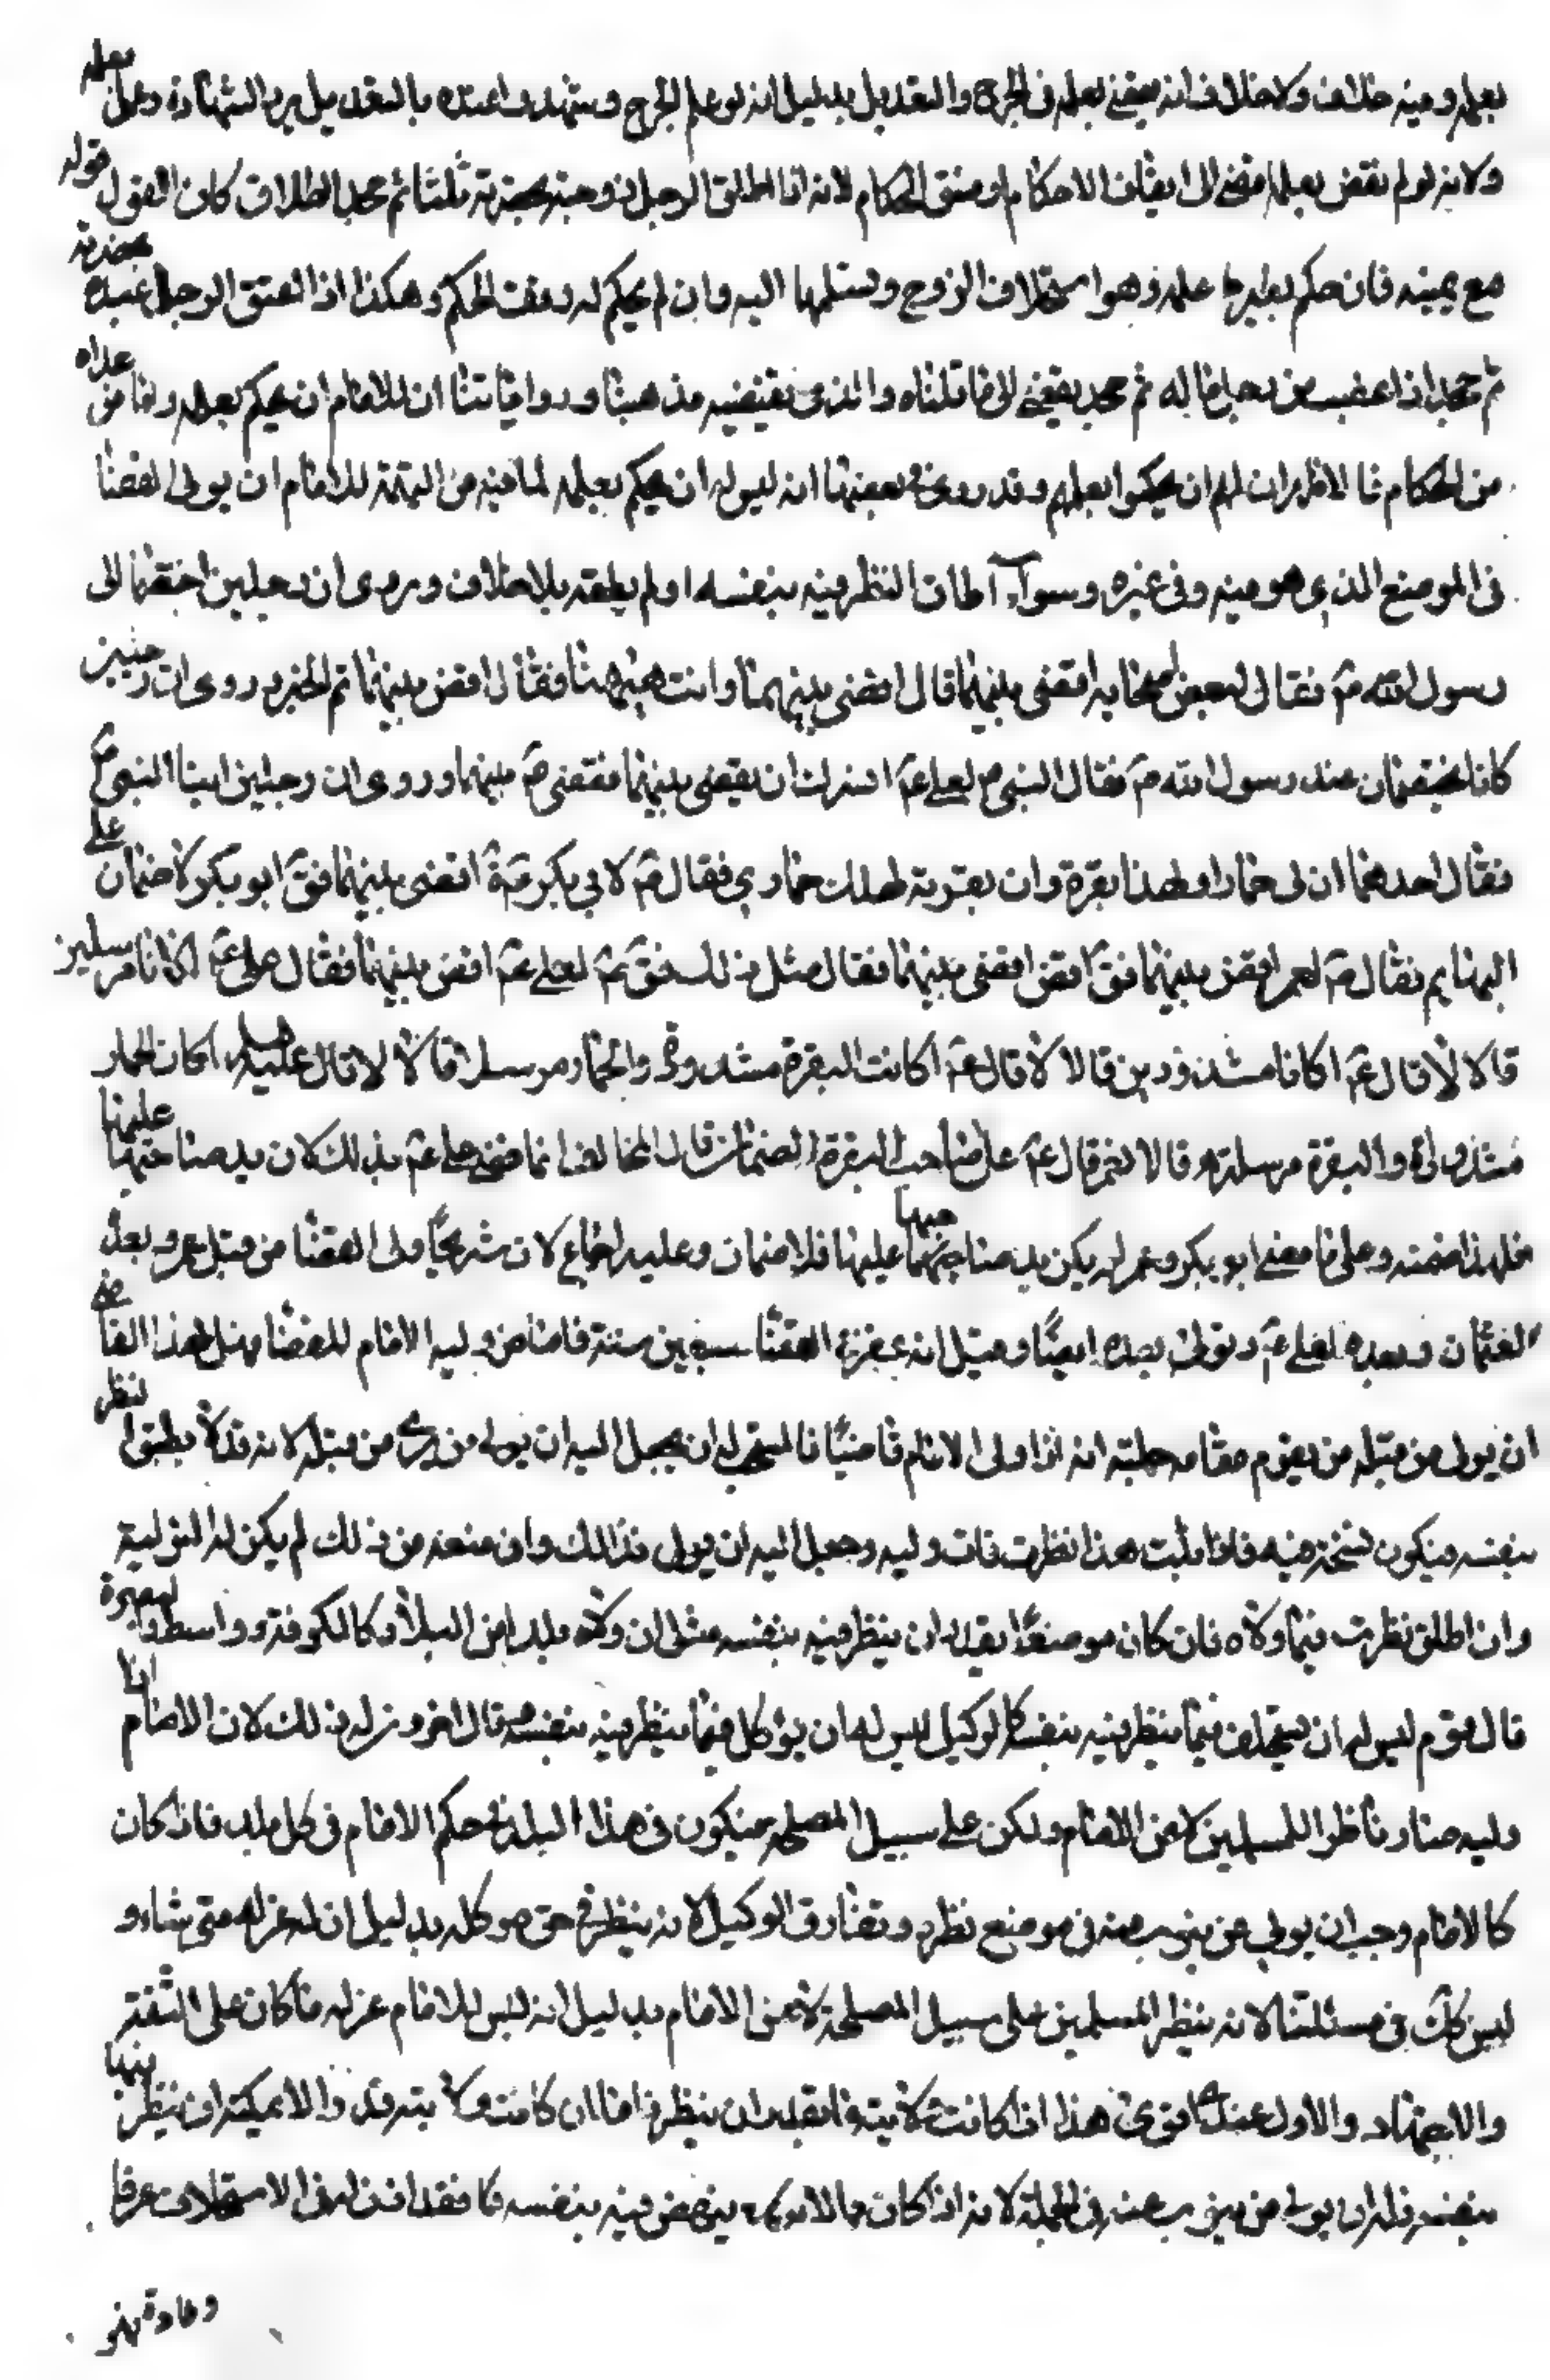 بعلمه وفيه خلاف ولا خلاف انه يقضي بعلمه في الجرح والتعديل بدليل انه لو علم الجرح وشهد عنده بالتعديل يرد الشهادة وعمل بعلمه
ولانه لو لم يقض بعلمه افضى الى ايقاف الاحكام او فسق الحكام لانه اذا طلق الرجل زوجته بحضرته ثلثا ثم جحد الطلاق كان القول قوله
مع يمينه فان حكم بغير علمه وهو استحلاف الزوج وتسليمها اليه وان لم يحكم له وقف الحكم وهكذا اذا اعتق الرجل عبده بحضرته
ثم جحد اذا غصب من رجل ماله ثم جحد يفضي الى ما قلناه والذي يقتضيه مذهبنا ورواياتنا ان للامام ان يحكم بعلمه واما من عداه
من الحكام فالاظهر ان لهم ان يحكموا بعلمهم وقد روي في بعضها انه ليس له ان يحكم بعلمه لما فيه من التهمة للامام ان يولي القضا
في الموضع الذي هو فيه وفي غيره وسواء اطاق النظر فيه بنفسه او لم يطقه بلا خلاف وروى ان رجلين اختصما الى
رسول الله صۤ فقال لبعض اصحابه اقض بينهما قال اقضي بينهما وانت هيهنا فقال اقض بينهما تم الخبر وروى ان رجلين
كانا يختصمان عند رسول الله صۤ فقال النبي صۤ لعلي عۤ ان يقضي بينهما فقضى بينهما وروى ان رجلين اتيا النبي صۤ
فقال احدهما ان لي حمارا ولهذا بقرة وان بقرته حماري فقال صۤ لابي بكر اقض بينهما فقۤ ابو بكر لا ضمان على
البهايم فقال صۤ لعمر اقض بينهما فقال مثل ذلك فقۤ صۤ لعلي عۤ اقض بينهما فقال علي عۤ اكانا مرسلين
قالا لا قال عۤ اكانا مشدودين قالا لا قال عۤ اكانت البقرة مشدودة والحمار مرسلا قالا لا قال عليه السلام اكان الحمار
مشدودا والبقرة مرسلة قالا نعم قال عۤ على صاحب البقرة الضمان قال المخالف انما قضى علي عۤ بذلك لان يد صاحبها عليها
فلهذا ضمنه وعلى ما قضى ابو بكر وعمر لم يكن يد صاحبها عليها فلا ضمان وعليه اجماع لان شريحا ولي القضا من قبل عمر وبعده
لعثمان وبعده لعلي عۤ وتولى بعده ايضا وقيل انه القضا سبعين سنة فاما من وليه الامام للقضا فهل لهذا القاضي
ان يولي من قبله من يقوم مقامه جملته انه اذا ولى الامام قاضيا فالمستحب له ان يجعل اليه ان يولي من يرى من قبله لانه قد لا يطيق النظر
بنفسه فيكون فيه فاذا ثبت هذا نظرت فان وليه وجعل اليه ان يولي فذالك وان منعه من ذلك لم يكن له التولية
وان اطلق نظرت فيما ولاه فان كان موضعا يقدر ان ينظر فيه بنفسه مثل ان ولاه بلدا من البلاد كالكوفة وواسط والبصرة
قال قوم ليس له ان يستخلف فيما ينظر فيه بنفسه كالوكيل ليس له ان يوكل فيما ينظر فيه بنفسه وقال اخرون له ذلك لان الامام اذا
وليه صار ناظرا للمسلمين لا عن الامام ولكن على سبيل المصلحة فيكون في هذا البلد في حكم الامام في كل بلد فاذا كان
كالامام وجب ان يولي من ينوب عنه في موضع نظره وتفارق الوكيل لانه ينظر في حق موكله بدليل ان له عزله متى شاء و
ليس كك في مسئلتنا لانه ينظر للمسلمين على سبيل المصلحة لا عن الامام بدليل انه ليس للامام عزله ما كان على الثقة
والاجتهاد والاول عندنا اقوى هذا اذا كانت ولايته مما يقدر ان ينظر فيها بنفسه فاما ان كانت ولايته قدرا لا يمكنه ان ينظر فيها
بنفسه فله ان يولي من ينوب عنه في الجملة لانه اذا كان مما لا ينهض فيه بنفسه فقد اذن له في الاستخلاف عرفا
وعادة فهو